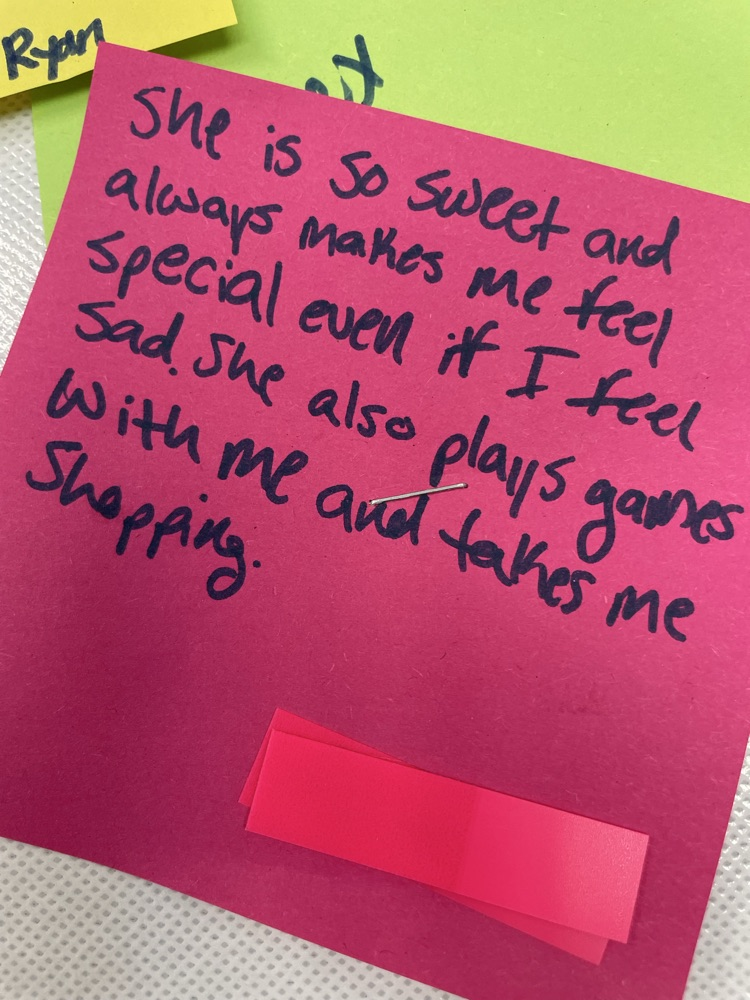 Ryan
She is so sweet and
always makes me feel
special even if I feel
sad. She also plays games
with me and takes me
Shopping.